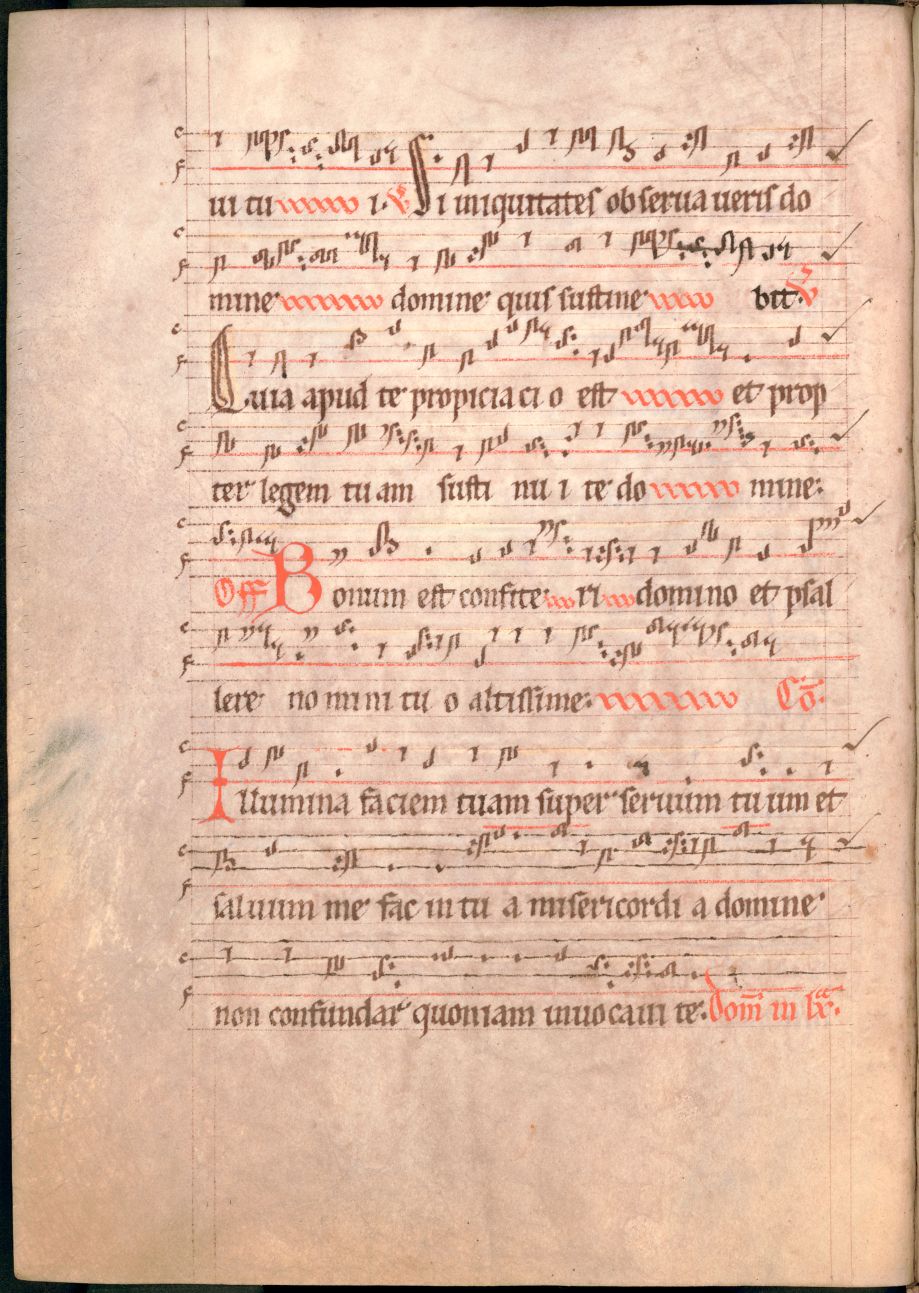 ui tu i. V Si iniquitates obserua ueris do
mine domine quis sustine bit. V
Quia apud te propicia ci o est et prop
ter legem tu am susti nu i te do mine.
Off Bonum est confite ri domino et psal
lere no mini tu o altissime. Co.
Illumina faciem tuam super seruum tu um et
saluum me fac in tu a misericordi a domine
non confundar quoniam inuocaui te. Dom in lxx.